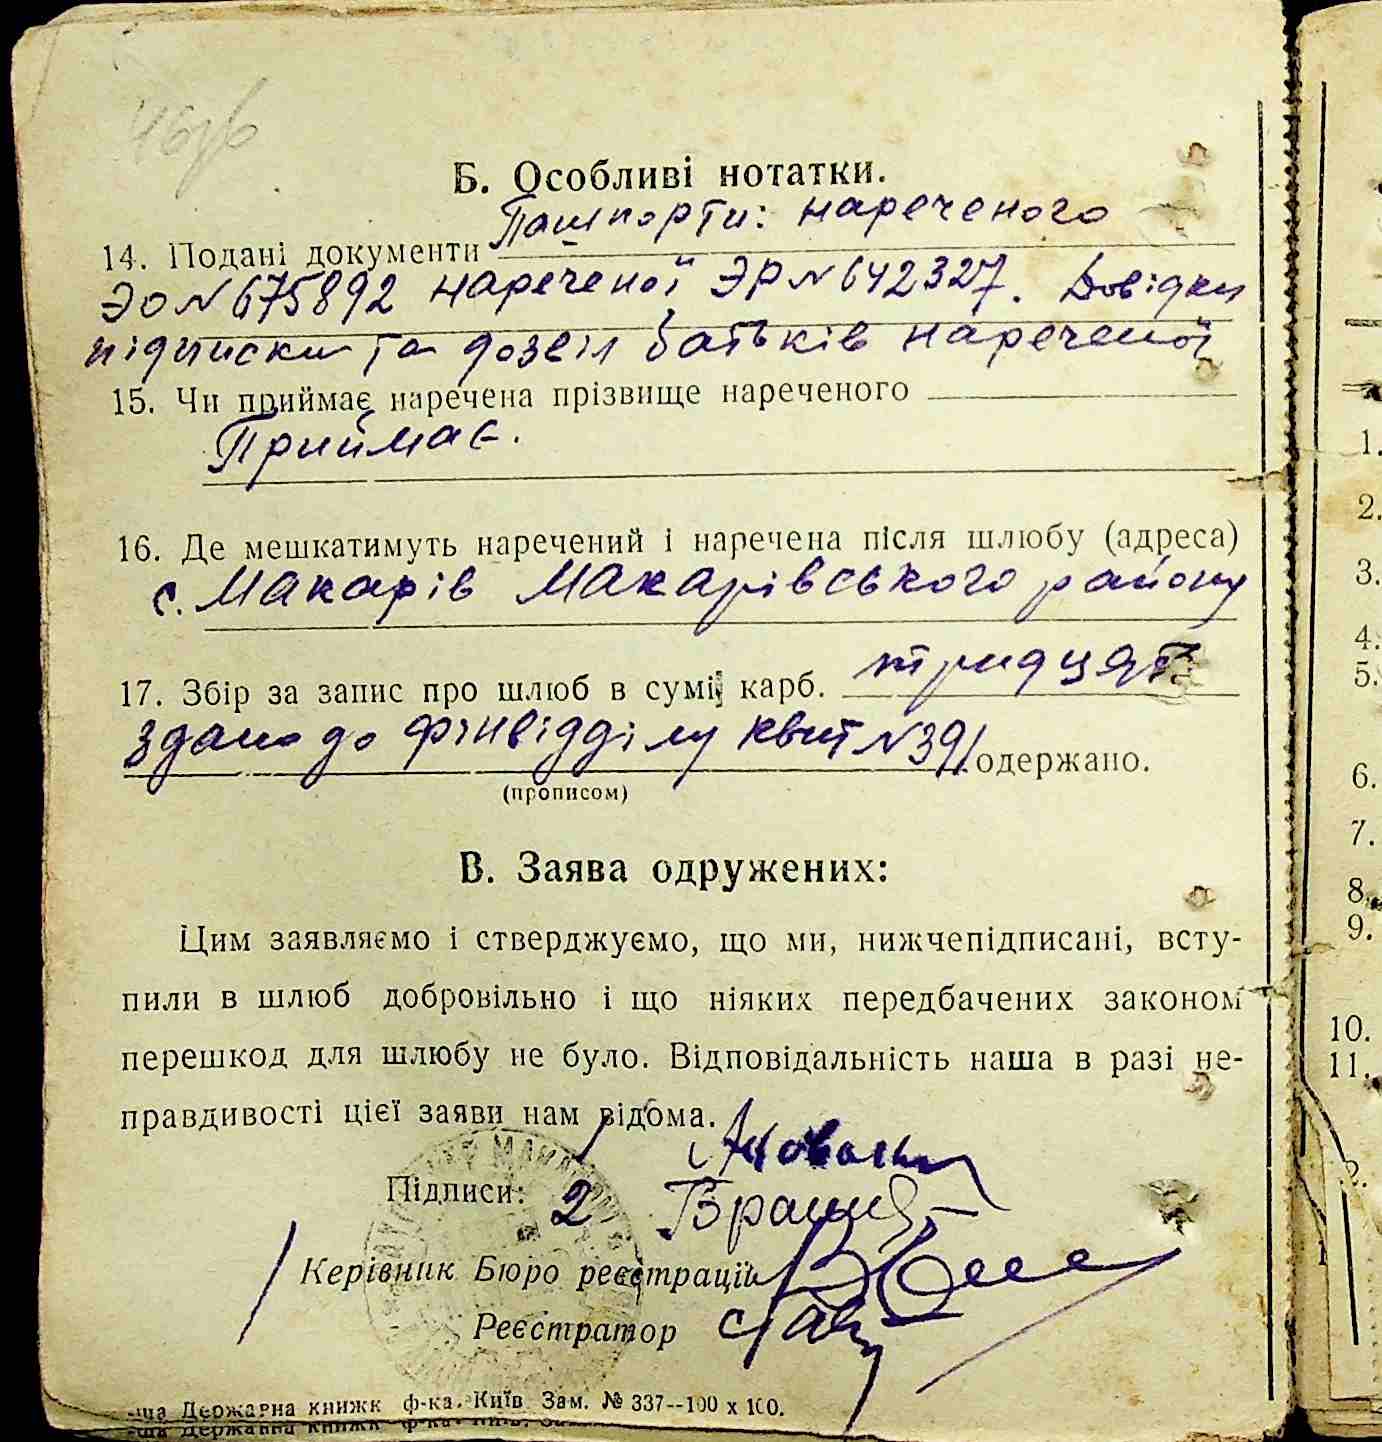 Б. Особливі нотатки.
14. Подані документи Пашпорти: нареченого
ЭО № 675892 нареченої ЭР № 642327. Довідки
підписки та дозвіл батьків нареченої
15. Чи приймає наречена прізвище нареченого
Приймає.
16. Де мешкатимуть наречений і наречена після шлюбу (адреса)
с. Макарів Макарівського району
17. Збір за запис про шлюб в сумі карб. тридцять
здано до фінвідділу квит № 39/ одержано.
(прописом)
В. Заява одружених:
Цим заявляємо і стверджуємо, що ми, нижчепідписані, всту-
пили в шлюб добровільно і що ніяких передбачених законом
перешкод для шлюбу не було. Відповідальність наша в разі не-
правдивості цієї заяви нам відома.
Підписи: 2
Керівник Бюро реєстрації
Реєстратор
-ша Державна книжк ф-ка. Київ Зам. № 337--100 х 100.
1.
2.
3.
4.
5.
6.
7.
8.
9.
10.
11.